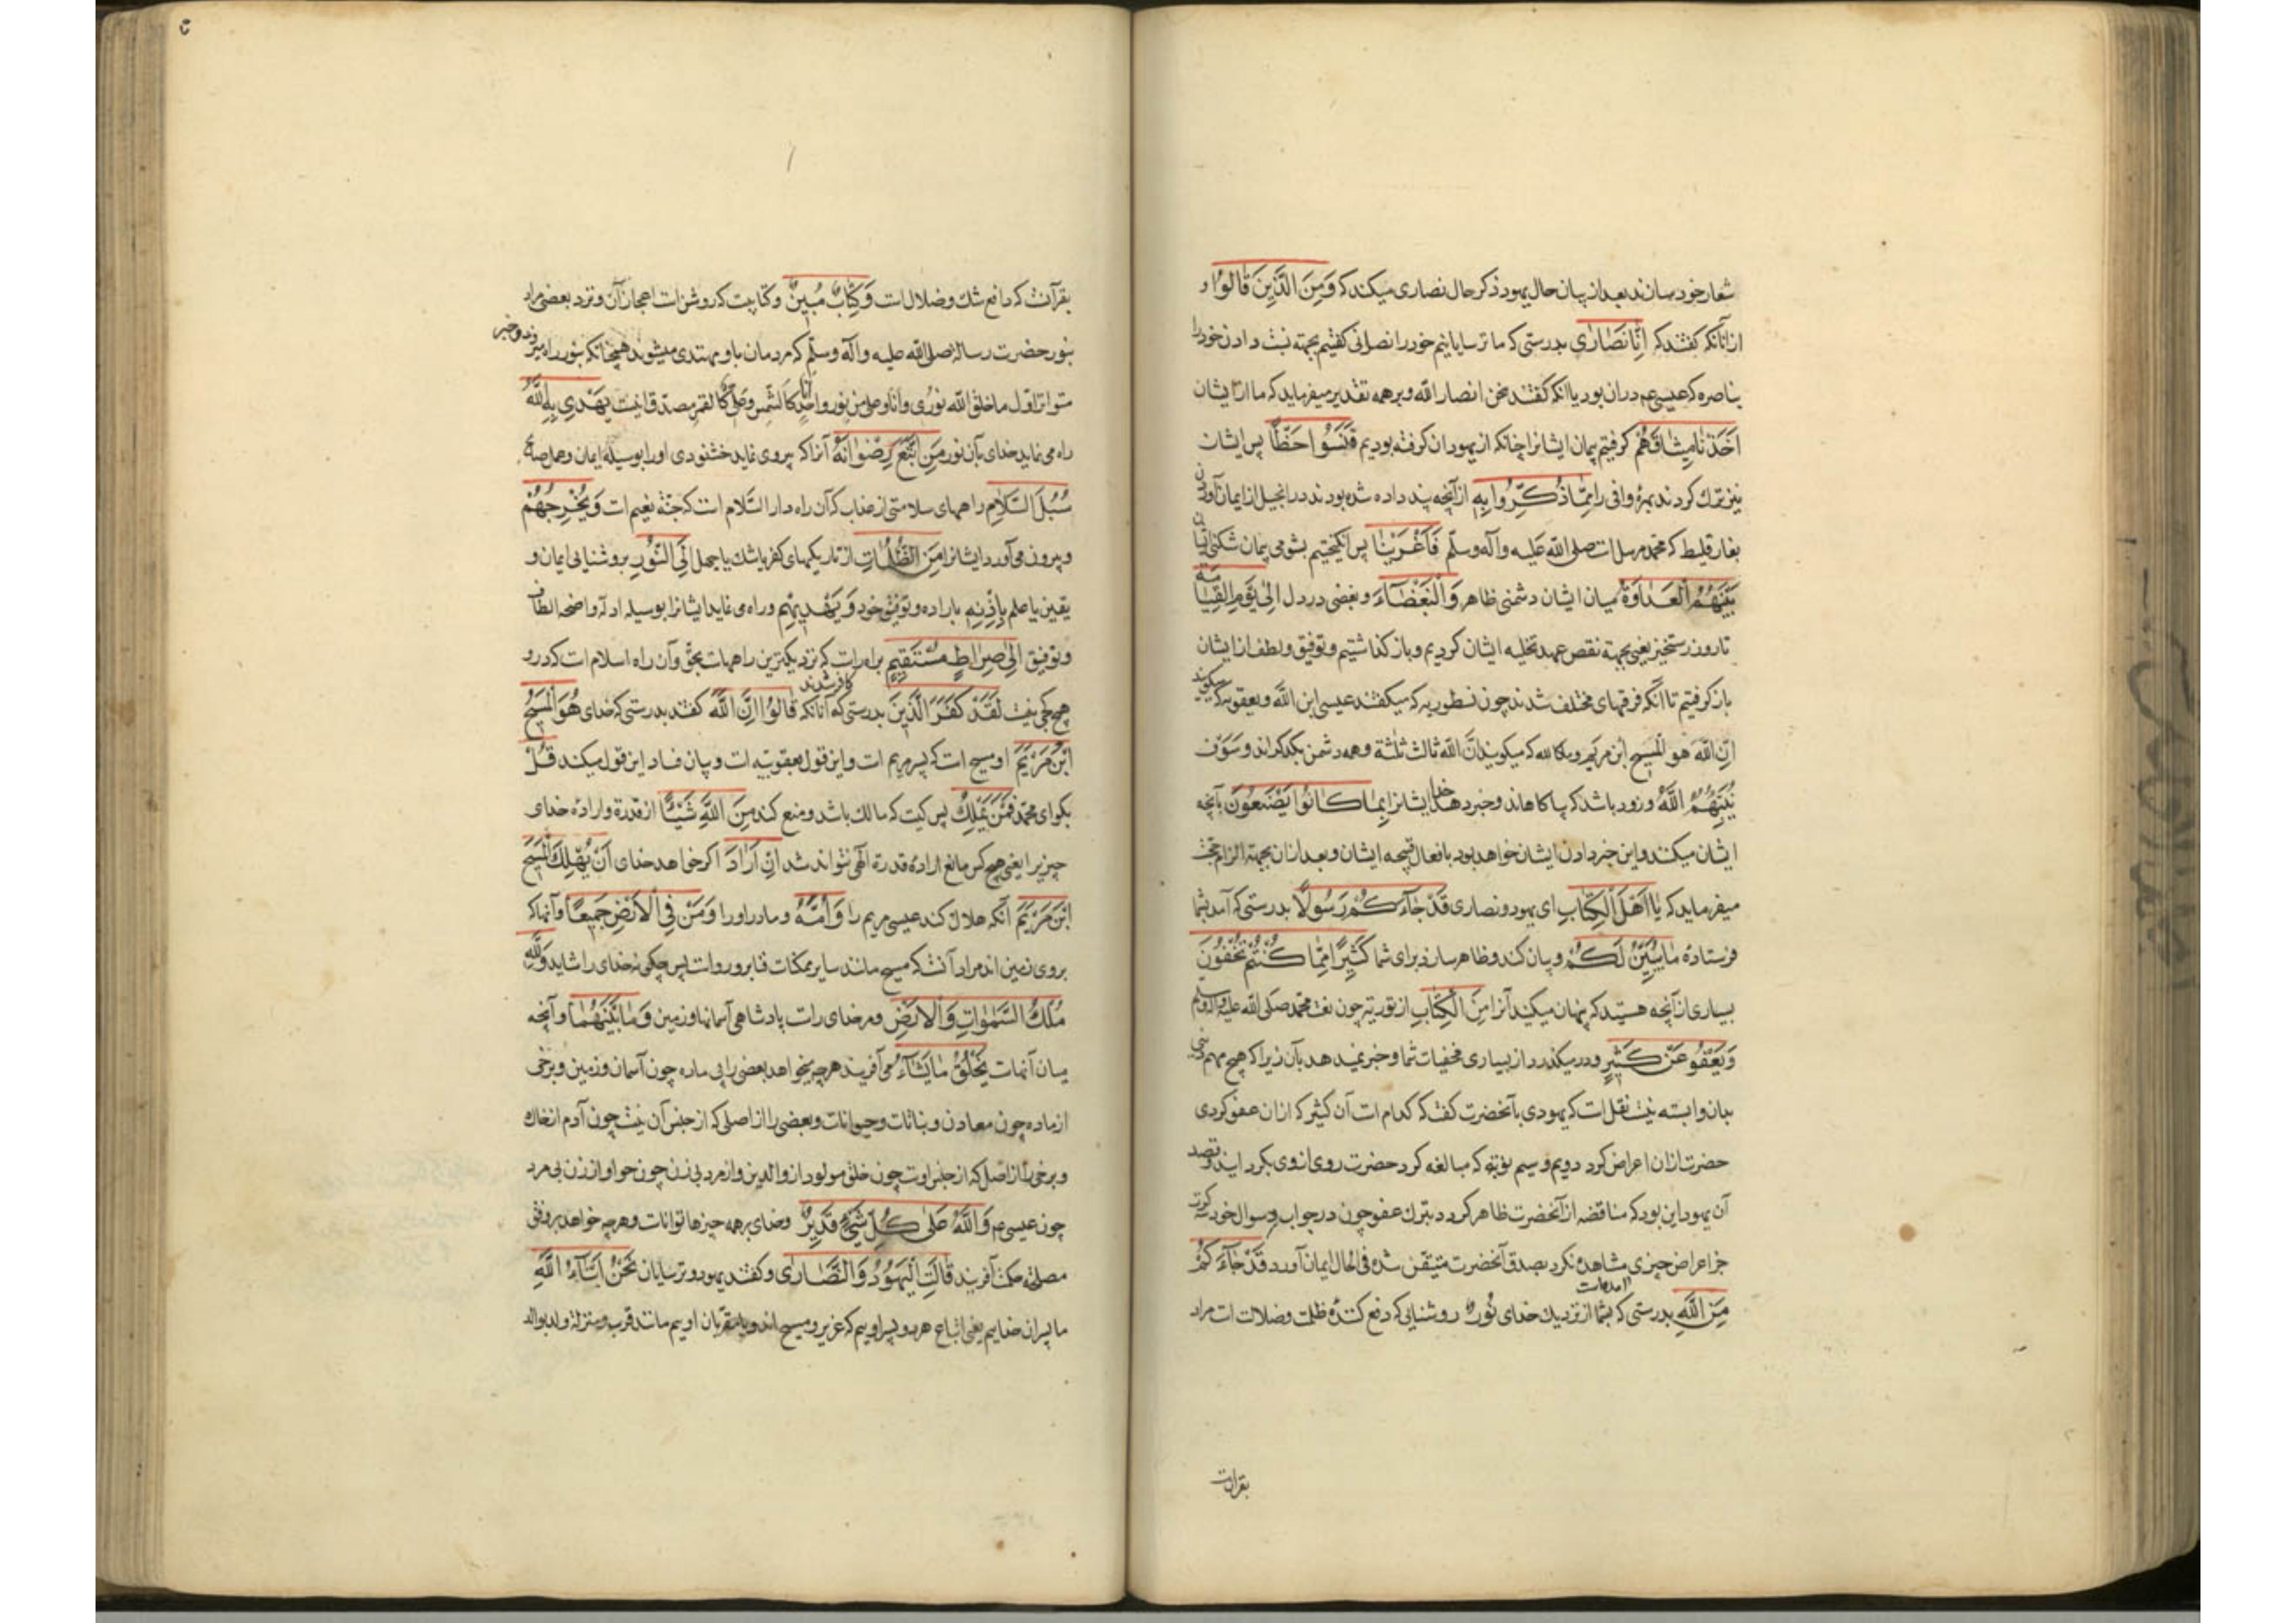 شعار خود سازند بعد از بیان حال یهود ذکر حال نصاری میکند که وَمِنَ الَّذِینَ قَالُوا و
از آنانکه کفتند که اِنَّا نَصَارٰی بدرستی که ما ترسایانیم خود را نصرانی کفتیم بجهته نسبت دادن خود را
بناصره که عیسی عم دران بود یا انکه کفتند نحن انصار الله و بر همه تقدیر میفرماید که ما از ایشان
اَخَذْنَا مِیثَاقَهُمْ کرفتیم پیمان ایشانرا چنانکه از یهودان کرفته بودیم فَنَسُوا حَظًّا پس ایشان
نیز ترک کردند بهرهٔ وافی را مِمَّا ذُکِّرُوا بِهِ از آنچه پند داده شده بودند در انجیل از ایمان آوردن
بفارقلیط که محمد مرسل است صلی الله علیه وآله وسلّم فَاَغْرَیْنَا پس انکیختیم بشومی پیمان شکنی ایشان
بَیْنَهُمُ الْعَدَاوَةَ میان ایشان دشمنی ظاهر وَالْبَغْضَآءَ و بغضی در دل اِلٰی یَوْمِ الْقِیَامَةِ
تا روز رستخیز یعنی بجهتة نقض عهد تخلیه ایشان کردیم و باز کذاشتیم و توفیق و لطف از ایشان
باز کرفتیم تا آنکه فرقهای مختلف شدند چون نسطوریه که میکفتند عیسی ابن الله و یعقوبیه که میکویند
اِنَّ اللهَ هو المسیح ابن مریم و ملکائیه که میکویند انّ الله ثالث ثلثة و همه دشمن یکدیکراند وَسَوْفَ
یُنَبِّئُهُمُ اللَّهُ و زود باشد که بیاکاهاند و خبر دهد خدا ایشانرا بِمَا کَانُوا یَصْنَعُونَ بآنچه
ایشان میکنند و این خبر دادن ایشان خواهد بود بافعال قبیحه ایشان و بعد ازان بجهتة الزام حجت
میفرماید که یَا اَهْلَ الْکِتَابِ ای یهود و نصاری قَدْ جَآءَکُمْ رَسُولًا بدرستی که آمد بشما
فرستادهٔ ما یُبَیِّنُ لَکُمْ و بیان کند و ظاهر سازد برای شما کَثِیرًا مِمَّا کُنْتُمْ تُخْفُونَ
بسیاری از آنچه هستید که پنهان میکنید آنرا مِنَ الْکِتَابِ از توریة چون نعت محمد صلی الله علیه وآله وسلم
وَیَعْفُو عَنْ کَثِیرٍ و در میکذرد از بسیاری مخفیات شما و خبر نمیدهد بآن زیرا که هیچ مهم دینی
بدان وابسته نیست نقلست که یهودی بآنحضرت کفت که کدام است آن کثیر که ازان عفو کردی
حضرت ازان اعراض کرد دویم و سیم نوبة که مبالغه کرد حضرت روی از وی بکردانید و قصد
آن یهود این بود که مناقضه از آنحضرت ظاهر کردد بترک عفو چون در جواب و سوال خود
جز اعراض چیزی مشاهده نکرد بصدق آنحضرت متیقن شده فی الحال ایمان آورد قَدْ جَآءَکُمْ
مِنَ اللَّهِ بدرستی که بشما آمده است از نزدیک خدای نُورٌ روشنایی که دفع کنندهٔ ظلمت و ضلالت است مراد
بقرآنست
بقرآنست که دافع شک و ضلال است وَکِتَابٌ مُبِینٌ و کتابیست که روشن است اعجاز آن و نزد بعضی مراد
بنور حضرت رسالة صلی الله علیه وآله وسلّم که مردمان باو مهتدی میشوند همچنانکه بنور راه میبرند و خبر
متواتر اوّل ما خلق الله نوری و انا و علی من نور واحد انا کالشّمس و علیّ کالقمر مصدق اینست یَهْدِی بِهِ اللَّهُ
راه می نماید خدای بآن نور مَنِ اتَّبَعَ رِضْوَانَهُ آنرا که پیروی نماید خشنودی او را بوسیلهٔ ایمان و عمل صالح
سُبُلَ السَّلَامِ راههای سلامتی از عذاب که آن راه دار السّلام است که جنّة نعیم است وَیُخْرِجُهُمْ
و بیرون می آورد ایشانرا مِنَ الظُّلُمَاتِ از تاریکیهای کفر یا شک یا جهل اِلَی النُّورِ بروشنایی ایمان و
یقین یا علم بِاِذْنِهِ باراده و توفیق خود وَیَهْدِیهِمْ و راه می نماید ایشانرا بوسیله ادلّه واضحه الطاف
و توفیق اِلٰی صِرَاطٍ مُسْتَقِیمٍ براه راست که نزدیکترین راههاست بحق و آن راه اسلام است که در او
هیچ کجی نیست لَقَدْ کَفَرَ الَّذِینَ بدرستی که کافر شدند آنانکه قَالُوا اِنَّ اللَّهَ کفتند بدرستی که خدای هُوَ الْمَسِیحُ
ابْنُ مَرْیَمَ او مسیح است که پسر مریم است و این قول یعقوبیّه است و بیان فساد این قول میکند قُلْ
بکو ای محمد فَمَنْ یَمْلِکُ پس کیست که مالک باشد و منع کند مِنَ اللَّهِ شَیْئًا از قدرة و ارادهٔ خدای
چیزیرا یعنی هیچ کس مانع ارادهٔ قدرة الهی نتواند شد اِنْ اَرَادَ اکر خواهد خدای اَنْ یُهْلِکَ الْمَسِیحَ
ابْنَ مَرْیَمَ آنکه هلاک کند عیسی مریم را وَاُمَّهُ و مادر او را وَمَنْ فِی الْاَرْضِ جَمِیعًا و آنها که
بروی زمین اند مراد آنست که مسیح مانند سایر ممکنات فنا برو رواست پس چکونه خدای را شاید وَلِلَّهِ
مُلْکُ السَّمٰوَاتِ وَالْاَرْضِ و مر خدای راست پادشاهی آسمانها و زمین وَمَا بَیْنَهُمَا و آنچه
میان آنهاست یَخْلُقُ مَا یَشَآءُ می آفریند هر چه میخواهد بعضی را بی ماده چون آسمان و زمین و برخی
از ماده چون معادن و نباتات و حیوانات و بعضی را از اصلی که از جنس آن نیست چون آدم از خاک
و برخی را از اصل که از جنس اوست چون خلق مولود از والدین و از مرد بی زن چون حوا و از زن بی مرد
چون عیسی عم وَاللَّهُ عَلٰی کُلِّ شَیْءٍ قَدِیرٌ و خدای بر همه چیزها تواناست و هر چه خواهد بر وفق
مصلحة حکمت آفریند قَالَتِ الْیَهُودُ وَالنَّصَارٰی و کفتند یهود و ترسایان نَحْنُ اَبْنَآءُ اللَّهِ
ما پسران خدایم یعنی اتباع هر دو پسر اوییم که عزیر و مسیح اند و یا مقرّبان اوییم مانند قرب و منزلة ولد بوالد